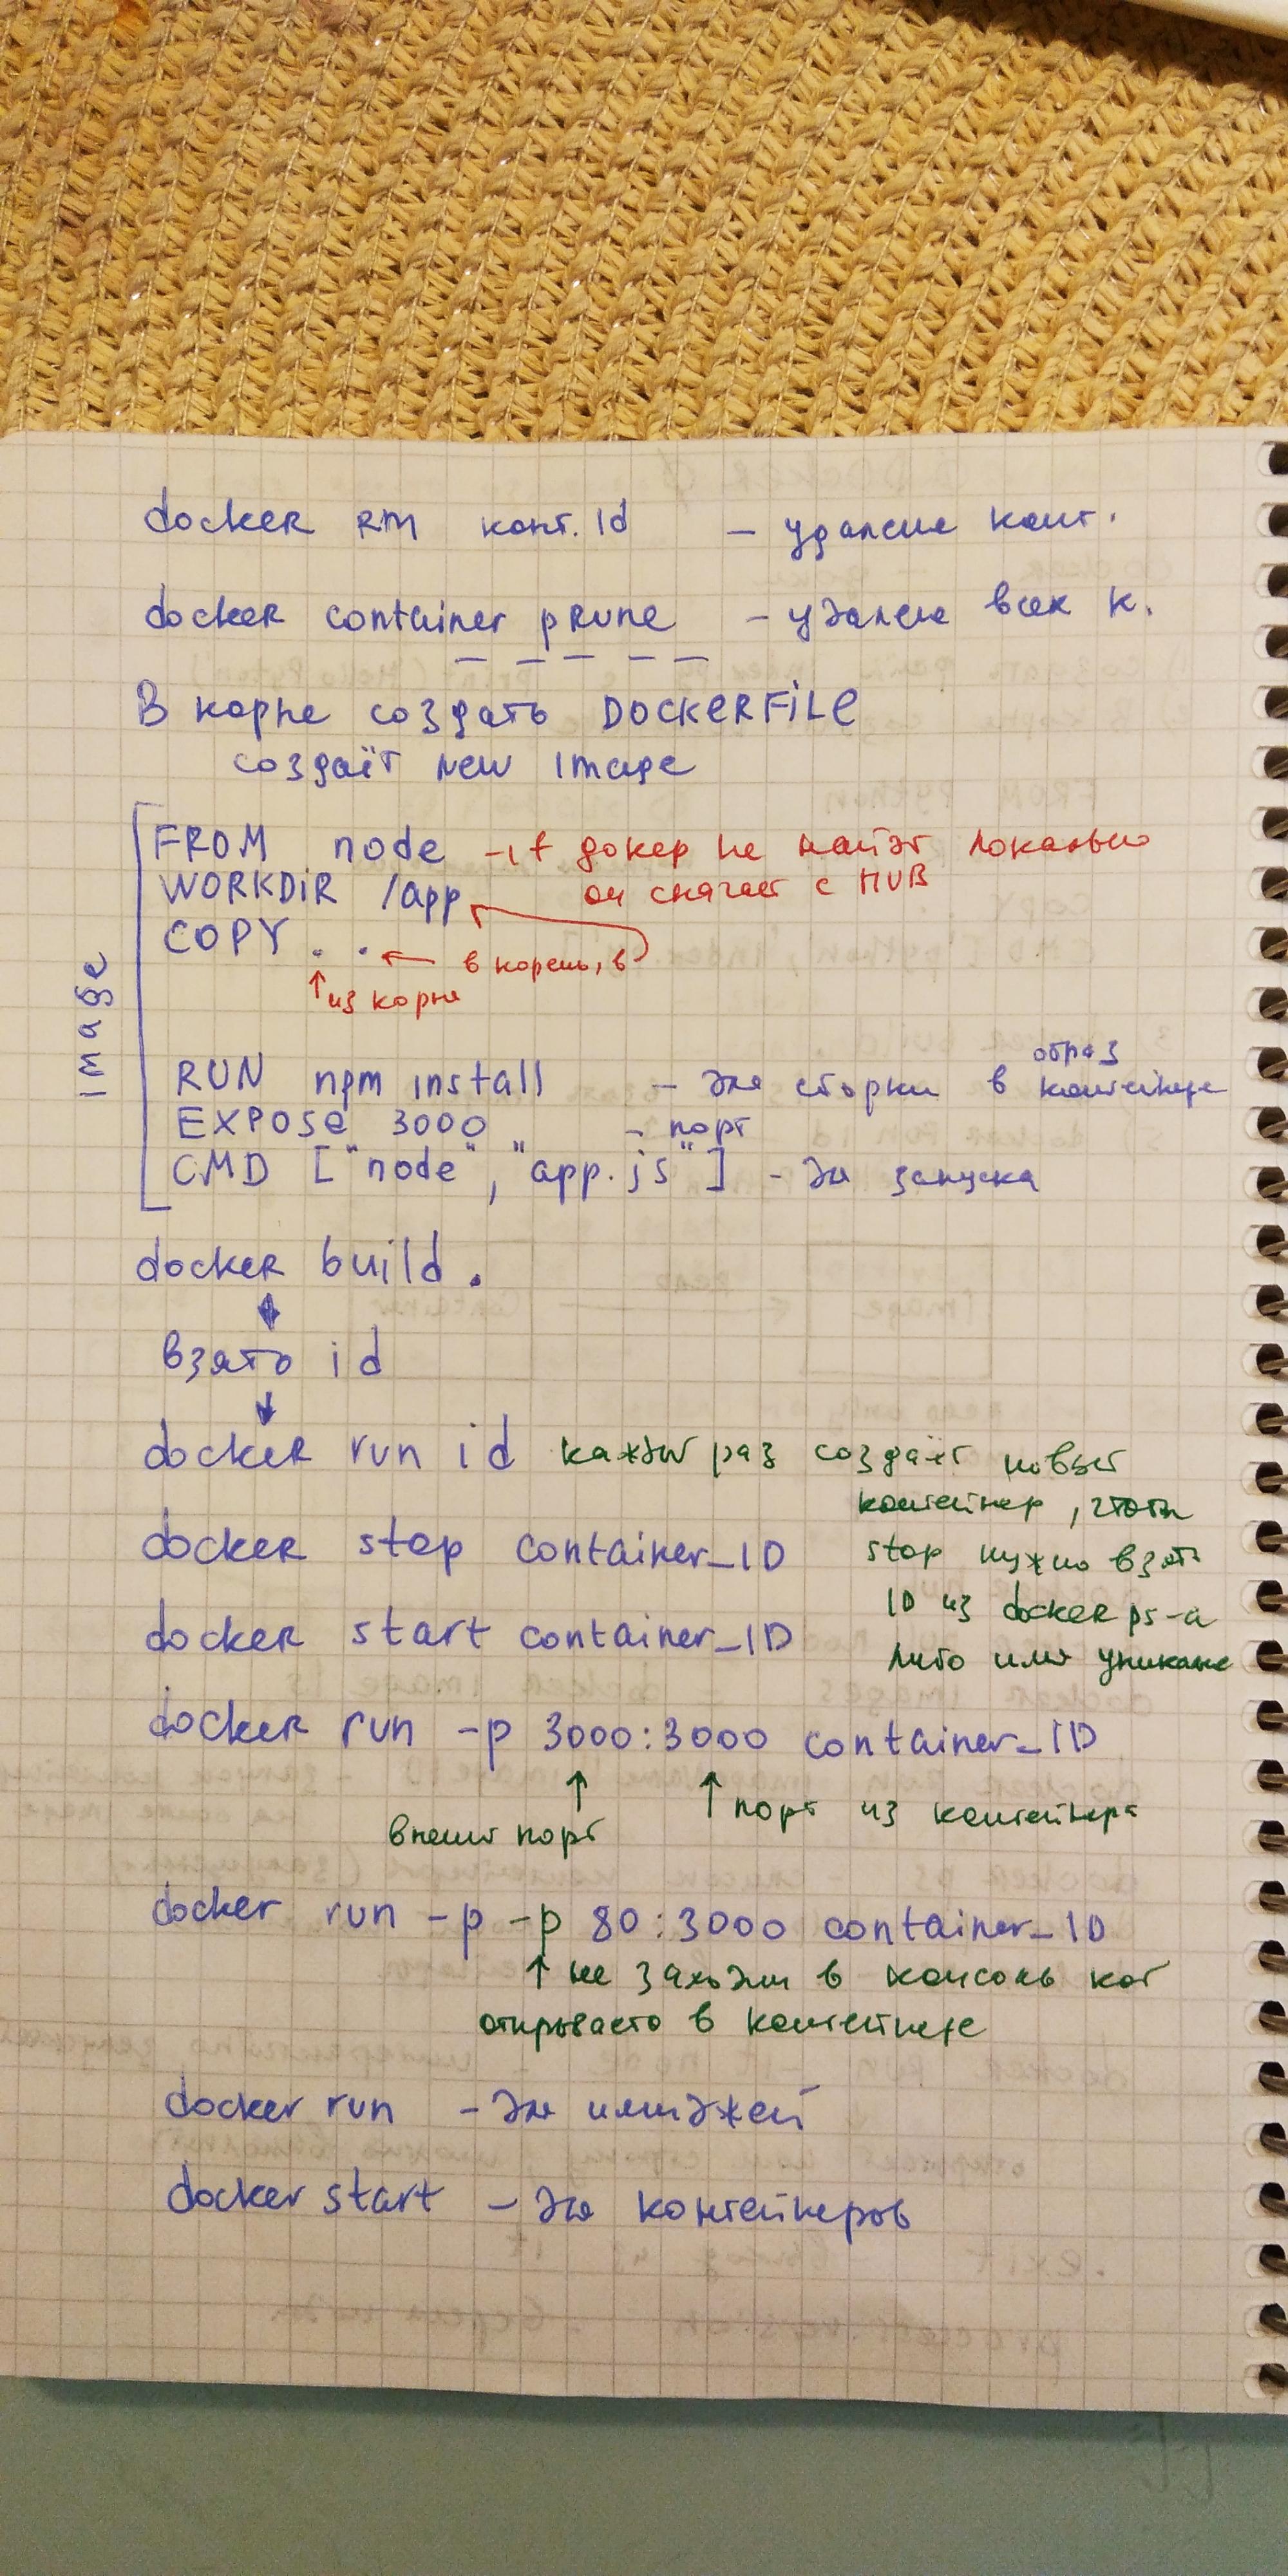 docker rm конт. id - удаление конт.
docker container prune - удаление всех к.
В корне создать DOCKERFILE
создаёт new image
image
FROM node - if докер не найдёт локально
он скачает с HUB
WORKDIR /app
COPY . . ← в корень, в
↑ из корня
RUN npm install - для сборки в контейнере
образ
EXPOSE 3000 - порт
CMD ["node", "app.js"] - для запуска
docker build .
взять id
docker run id каждый раз создаёт новый
контейнер, чтобы
docker stop container_ID stop нужно взять
ID из docker ps -a
docker start container_ID
либо имя
docker run -p 3000:3000 container_ID
↑ внешн порт
↑ порт из контейнера
docker run -p -p 80:3000 container_ID
↑ не заходим в консоль
в контейнере
docker run - для имиджей
docker start - для контейнеров